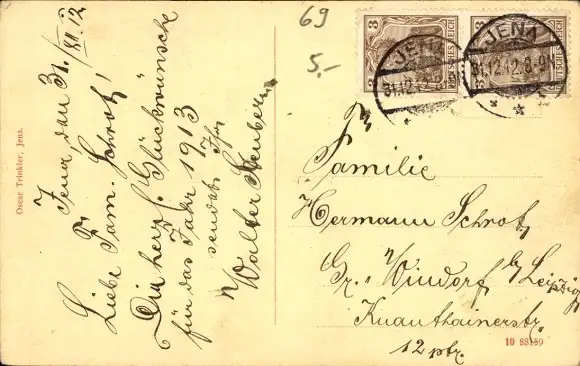 69
5.-
Jena, den 31./XII.12
Liebe Fam. Schrot!
Die herzl. Glückwünsche
für das Jahr 1913
sendet Ihr
Walter
Oscar Trinkler, Jena.
3
DEUTSCHES REICH
3
DEUTSCHES REICH
JENA
31.12.12
JENA
31.12.12.8-9N
Familie
Hermann Schrot
Gr. Windorf b/ Leipzig
Knauthainerstr.
12 ptr.
10 88159